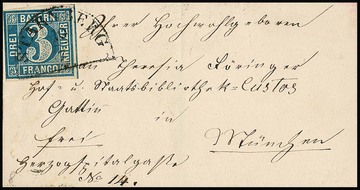 BAYERN
DREI
3
KREUZER
FRANCO
BERG
Ihrer Hochwohlgeboren
Frau Theresia Föringer
Hof- u. Staatsbibliothek-Custos
Gattin
in
frei
München
Herzogspitalgasse
No 14.